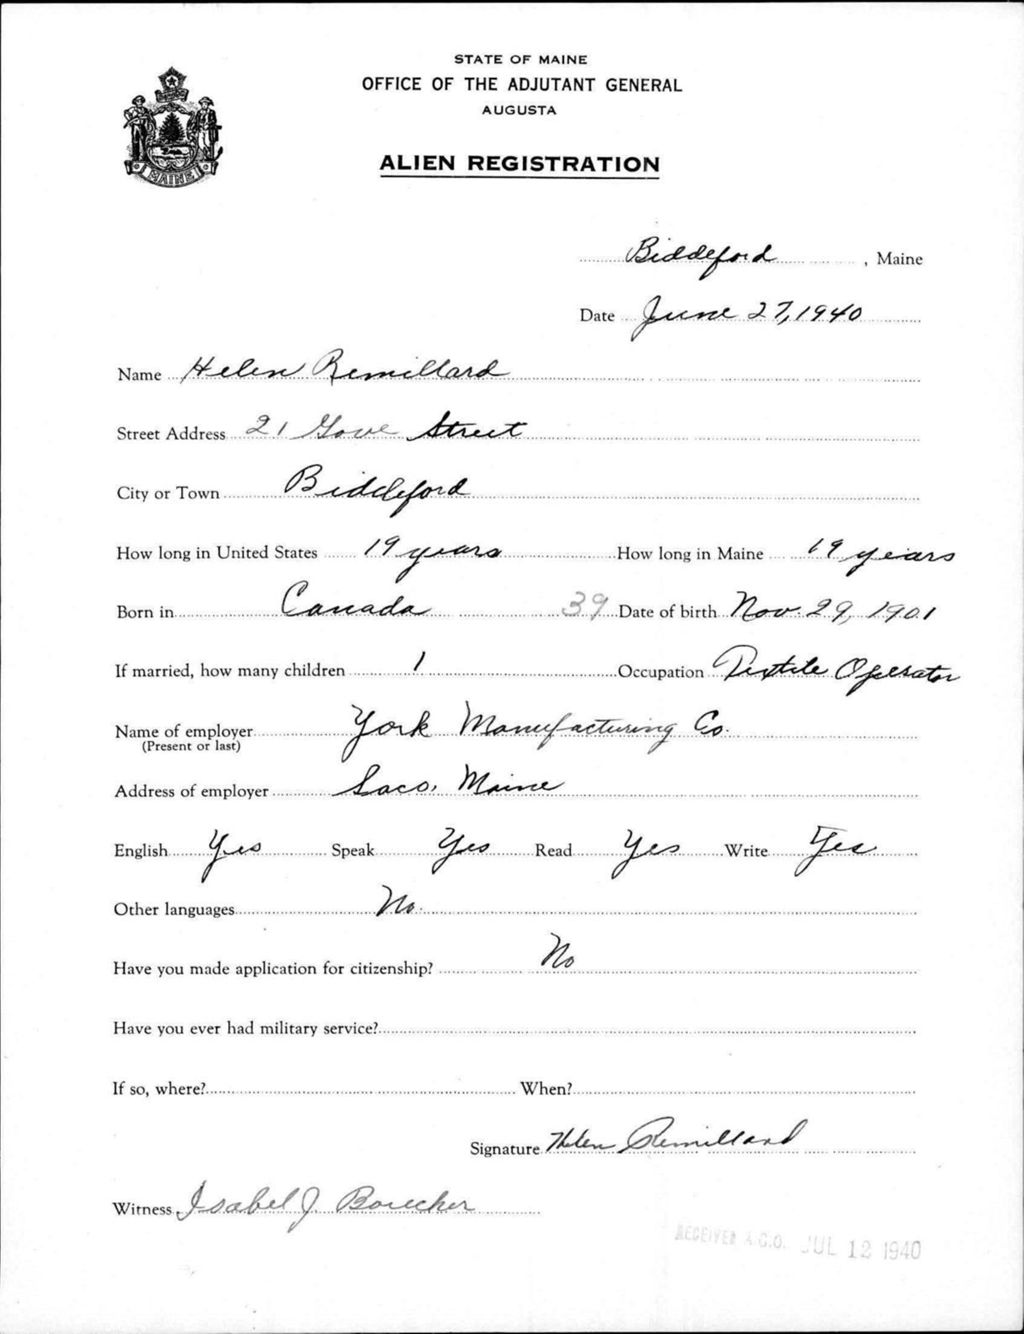 STATE OF MAINE
OFFICE OF THE ADJUTANT GENERAL
AUGUSTA
ALIEN REGISTRATION
MAINE
Biddeford, Maine
Date June 27, 1940
Name Helen Remillard
Street Address 21 Gove Street
City or Town Biddeford
How long in United States 19 years How long in Maine 19 years
Born in Canada 39 Date of birth Nov. 29, 1901
If married, how many children 1 Occupation Textile Operator
Name of employer York Manufacturing Co.
(Present or last)
Address of employer Saco, Maine
English Yes Speak Yes Read Yes Write Yes
Other languages No.
Have you made application for citizenship? No
Have you ever had military service?
If so, where? When?
Signature Helen Remillard
Witness Isabel J. Boucher
RECEIVED A.G.O. JUL 12 1940